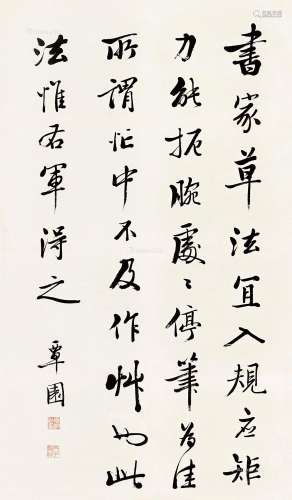 書家草法宜入規应矩
力能扼腕處〻停筆為佳
所謂忙中不及作艸也此
法惟右軍得之
覃園